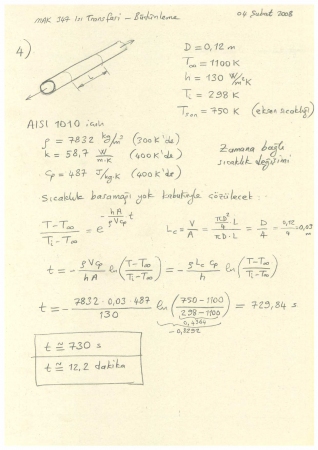 MAK 347 Isı Transferi - Bütünleme 04 Şubat 2008
4)
L
D = 0,12 m
T∞ = 1100 K
h = 130 W/m²K
Ti = 298 K
Tson = 750 K (eksen sıcaklığı)
AISI 1010 için
ρ = 7832 kg/m³ (300 K'de)
k = 58,7 W/m.K (400 K'de)
Cp = 487 J/kg.K (400 K'de)
Zamana bağlı
sıcaklık değişimi
Sıcaklık basamağı yok kabulüyle çözülecek
(T-T∞)/(Ti-T∞) = e^(-(hA/ρVCp)t) Lc = V/A = (πD²/4 · L)/(πD·L) = D/4 = 0,12/4 = 0,03 m
t = - ρVCp/hA ln((T-T∞)/(Ti-T∞)) = - ρLcCp/h ln((T-T∞)/(Ti-T∞))
t = - 7832 · 0,03 · 487/130 ln((750-1100)/(298-1100)) = 729,84 s
0,4364
-0,8292
t ≅ 730 s
t ≅ 12,2 dakika